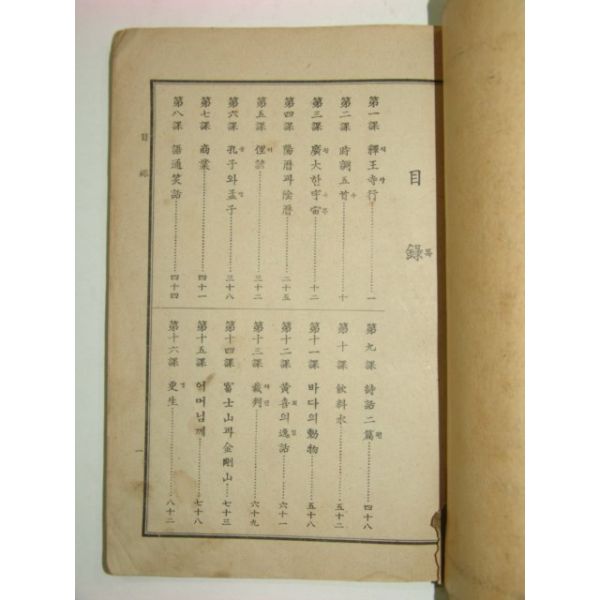 目錄
第一課 釋王寺行 一
第二課 時調五首 十
第三課 廣大한宇宙 十二
第四課 陽曆과陰曆 二十五
第五課 俚諺 三十二
第六課 孔子와孟子 三十八
第七課 商業 四十一
第八課 語通笑話 四十四
第九課 詩話二篇 四十八
第十課 飮料水 五十二
第十一課 바다의動物 五十八
第十二課 黃喜의逸話 六十一
第十三課 裁判 六十九
第十四課 富士山과金剛山 七十三
第十五課 어머님께 七十八
第十六課 更生 八十二
目錄 一